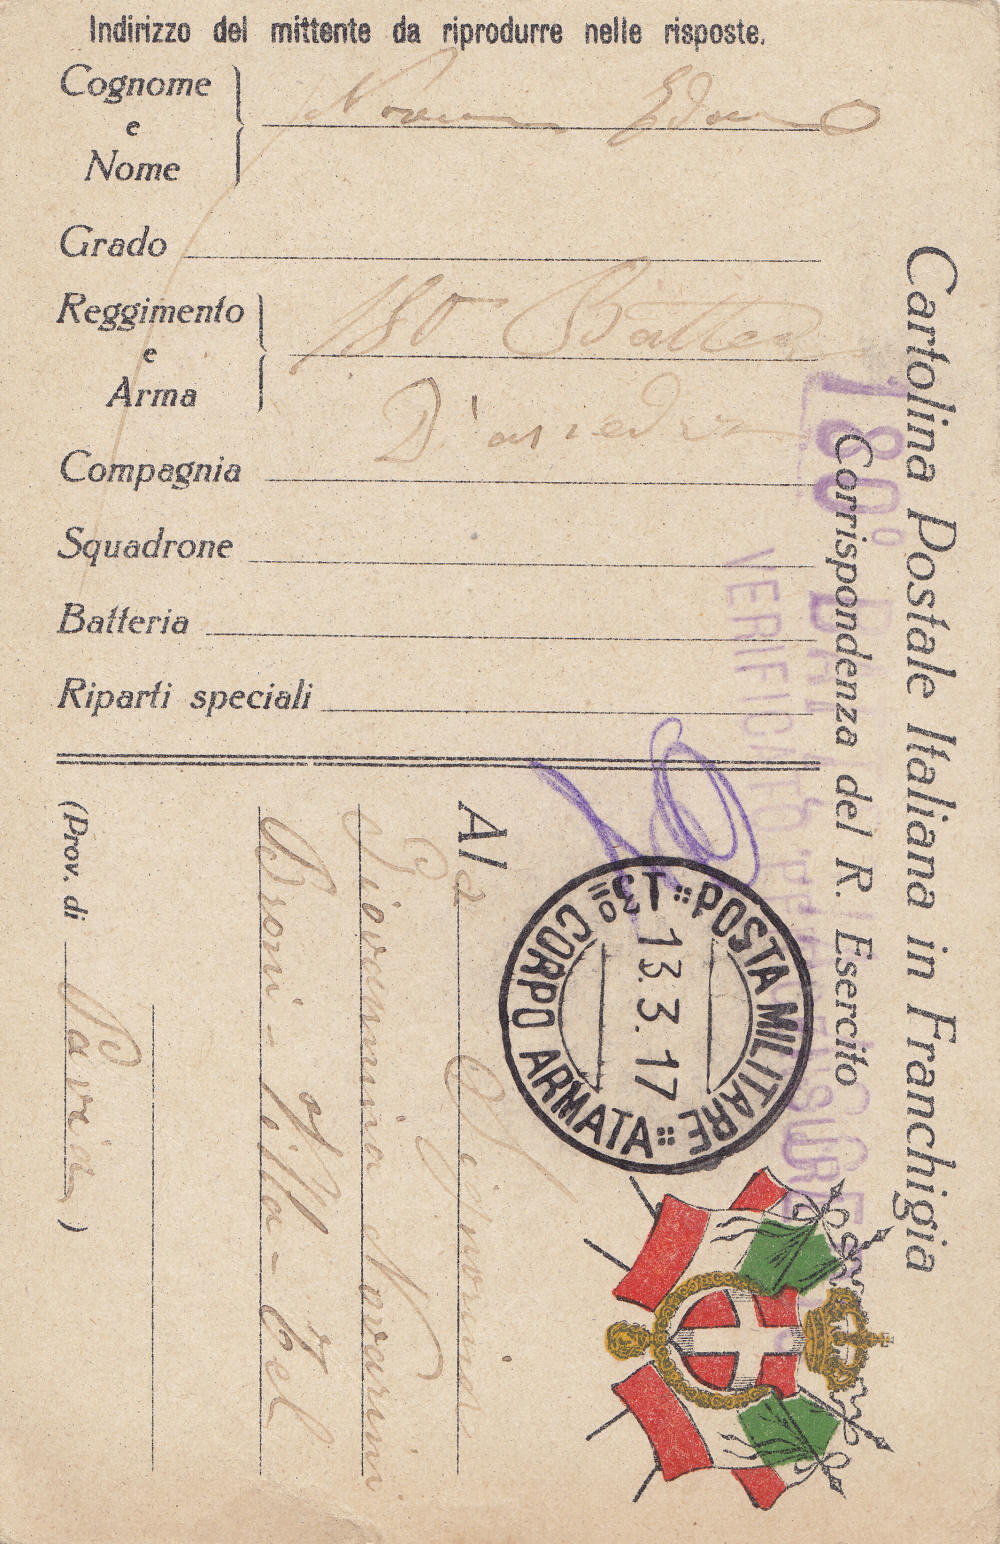 Cartolina Postale Italiana in Franchigia
Corrispondenza del R. Esercito
Indirizzo del mittente da riprodurre nelle risposte.
Cognome
e
Nome
Grado
Reggimento
e
Arma
180 Batteria
D'assedio
Compagnia
Squadrone
Batteria
Riparti speciali
180° BA
VERIFICATO PER CENSURA
POSTA MILITARE
13°
13.3.17
CORPO ARMATA
Alla Signorina
Giovannina Novarini
Broni - Villa - Bel
(Prov. di Pavia)